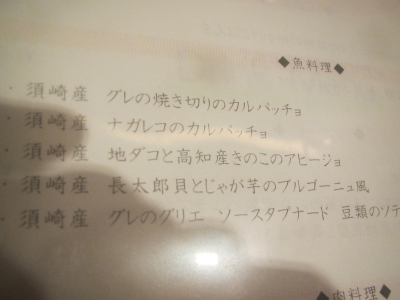 ◆魚料理◆
・須崎産 グレの焼き切りのカルパッチョ
・須崎産 ナガレコのカルパッチョ
・須崎産 地ダコと高知産きのこのアヒージョ
・須崎産 長太郎貝とじゃが芋のブルゴーニュ風
・須崎産 グレのグリエ ソースタプナード 豆類のソテ
◆肉料理◆